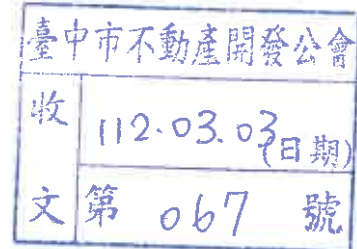 臺中市不動產開發公會
收文
112.03.03(日期)
第 067 號